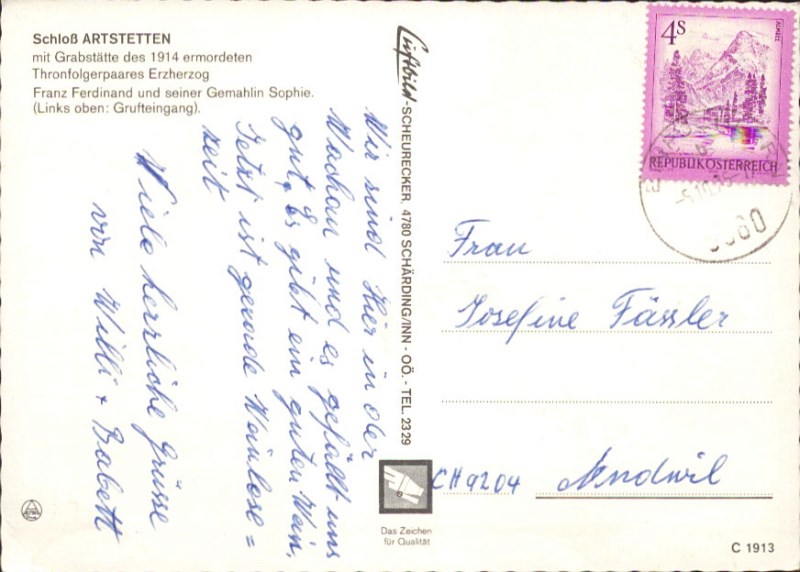 Schloß ARTSTETTEN
mit Grabstätte des 1914 ermordeten
Thronfolgerpaares Erzherzog
Franz Ferdinand und seiner Gemahlin Sophie.
(Links oben: Grufteingang).
Wir sind hier in der
Wachau und es gefällt uns
gut, Es gibt ein guten Wein,
Jetzt ist gerade Weinlese =
zeit
Viele herzliche Grüsse
von Willi + Babett
Luftbild-SCHEURECKER, 4780 SCHÄRDING/INN - OÖ. - TEL. 23 29
Das Zeichen
für Qualität
4S
ALMSEE
REPUBLIK ÖSTERREICH
Frau
Josefine Fässler
CH 9204 Andwil
C 1913